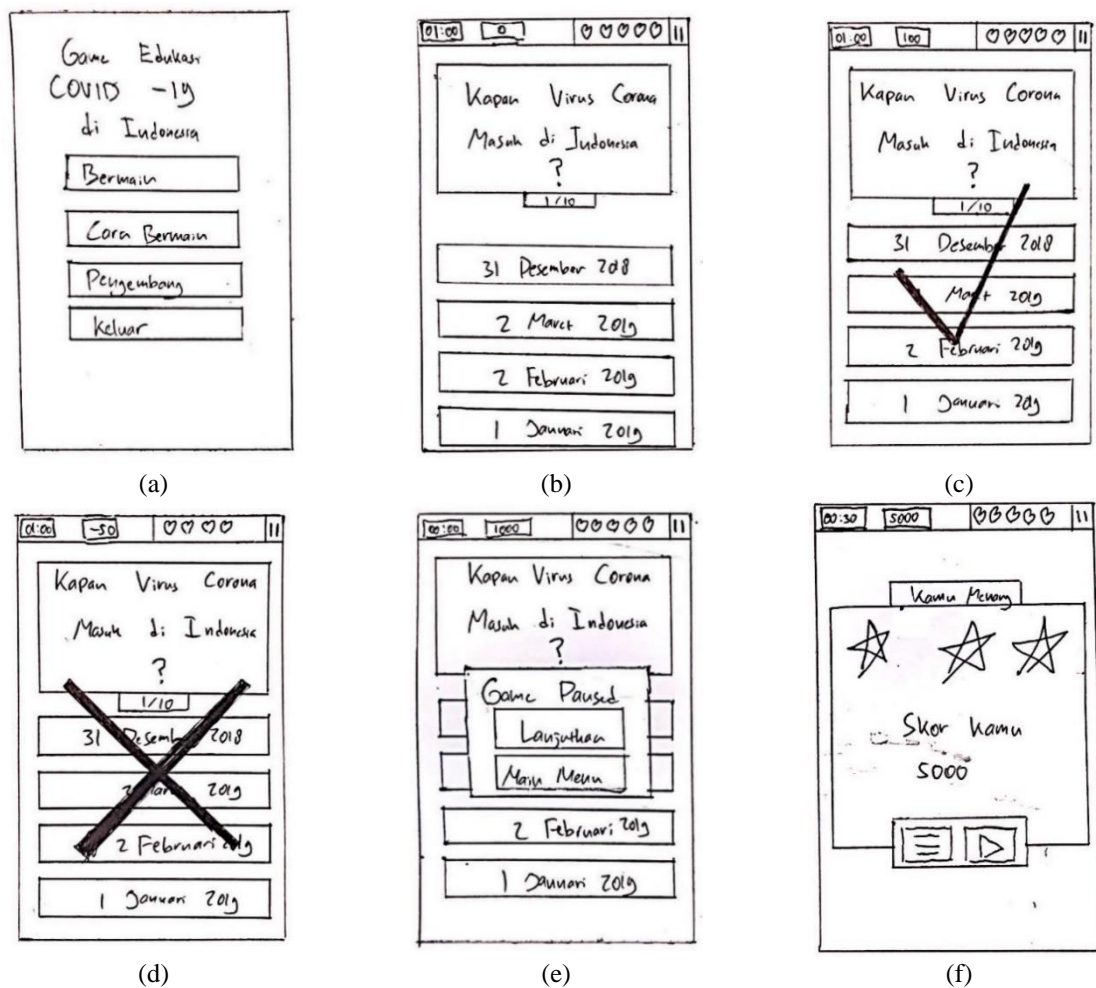 Game Edukasi
COVID -19
di Indonesia
Bermain
Cara Bermain
Pengembang
Keluar
(a)
01:00 0
Kapan Virus Corona
Masuk di Indonesia
?
1/10
31 Desember 2018
2 Maret 2019
2 Februari 2019
1 Januari 2019
(b)
01:00 100
Kapan Virus Corona
Masuk di Indonesia
?
1/10
31 Desember 2018
Maret 2019
2 Februari 2019
1 Januari 2019
(c)
01:00 -50
Kapan Virus Corona
Masuk di Indonesia
?
1/10
31 Desember 2018
2 Maret 2019
2 Februari 2019
1 Januari 2019
(d)
00:00 1000
Kapan Virus Corona
Masuk di Indonesia
?
Game Paused
Lanjutkan
Main Menu
2 Februari 2019
1 Januari 2019
(e)
00:30 5000
Kamu Menang
Skor Kamu
5000
(f)